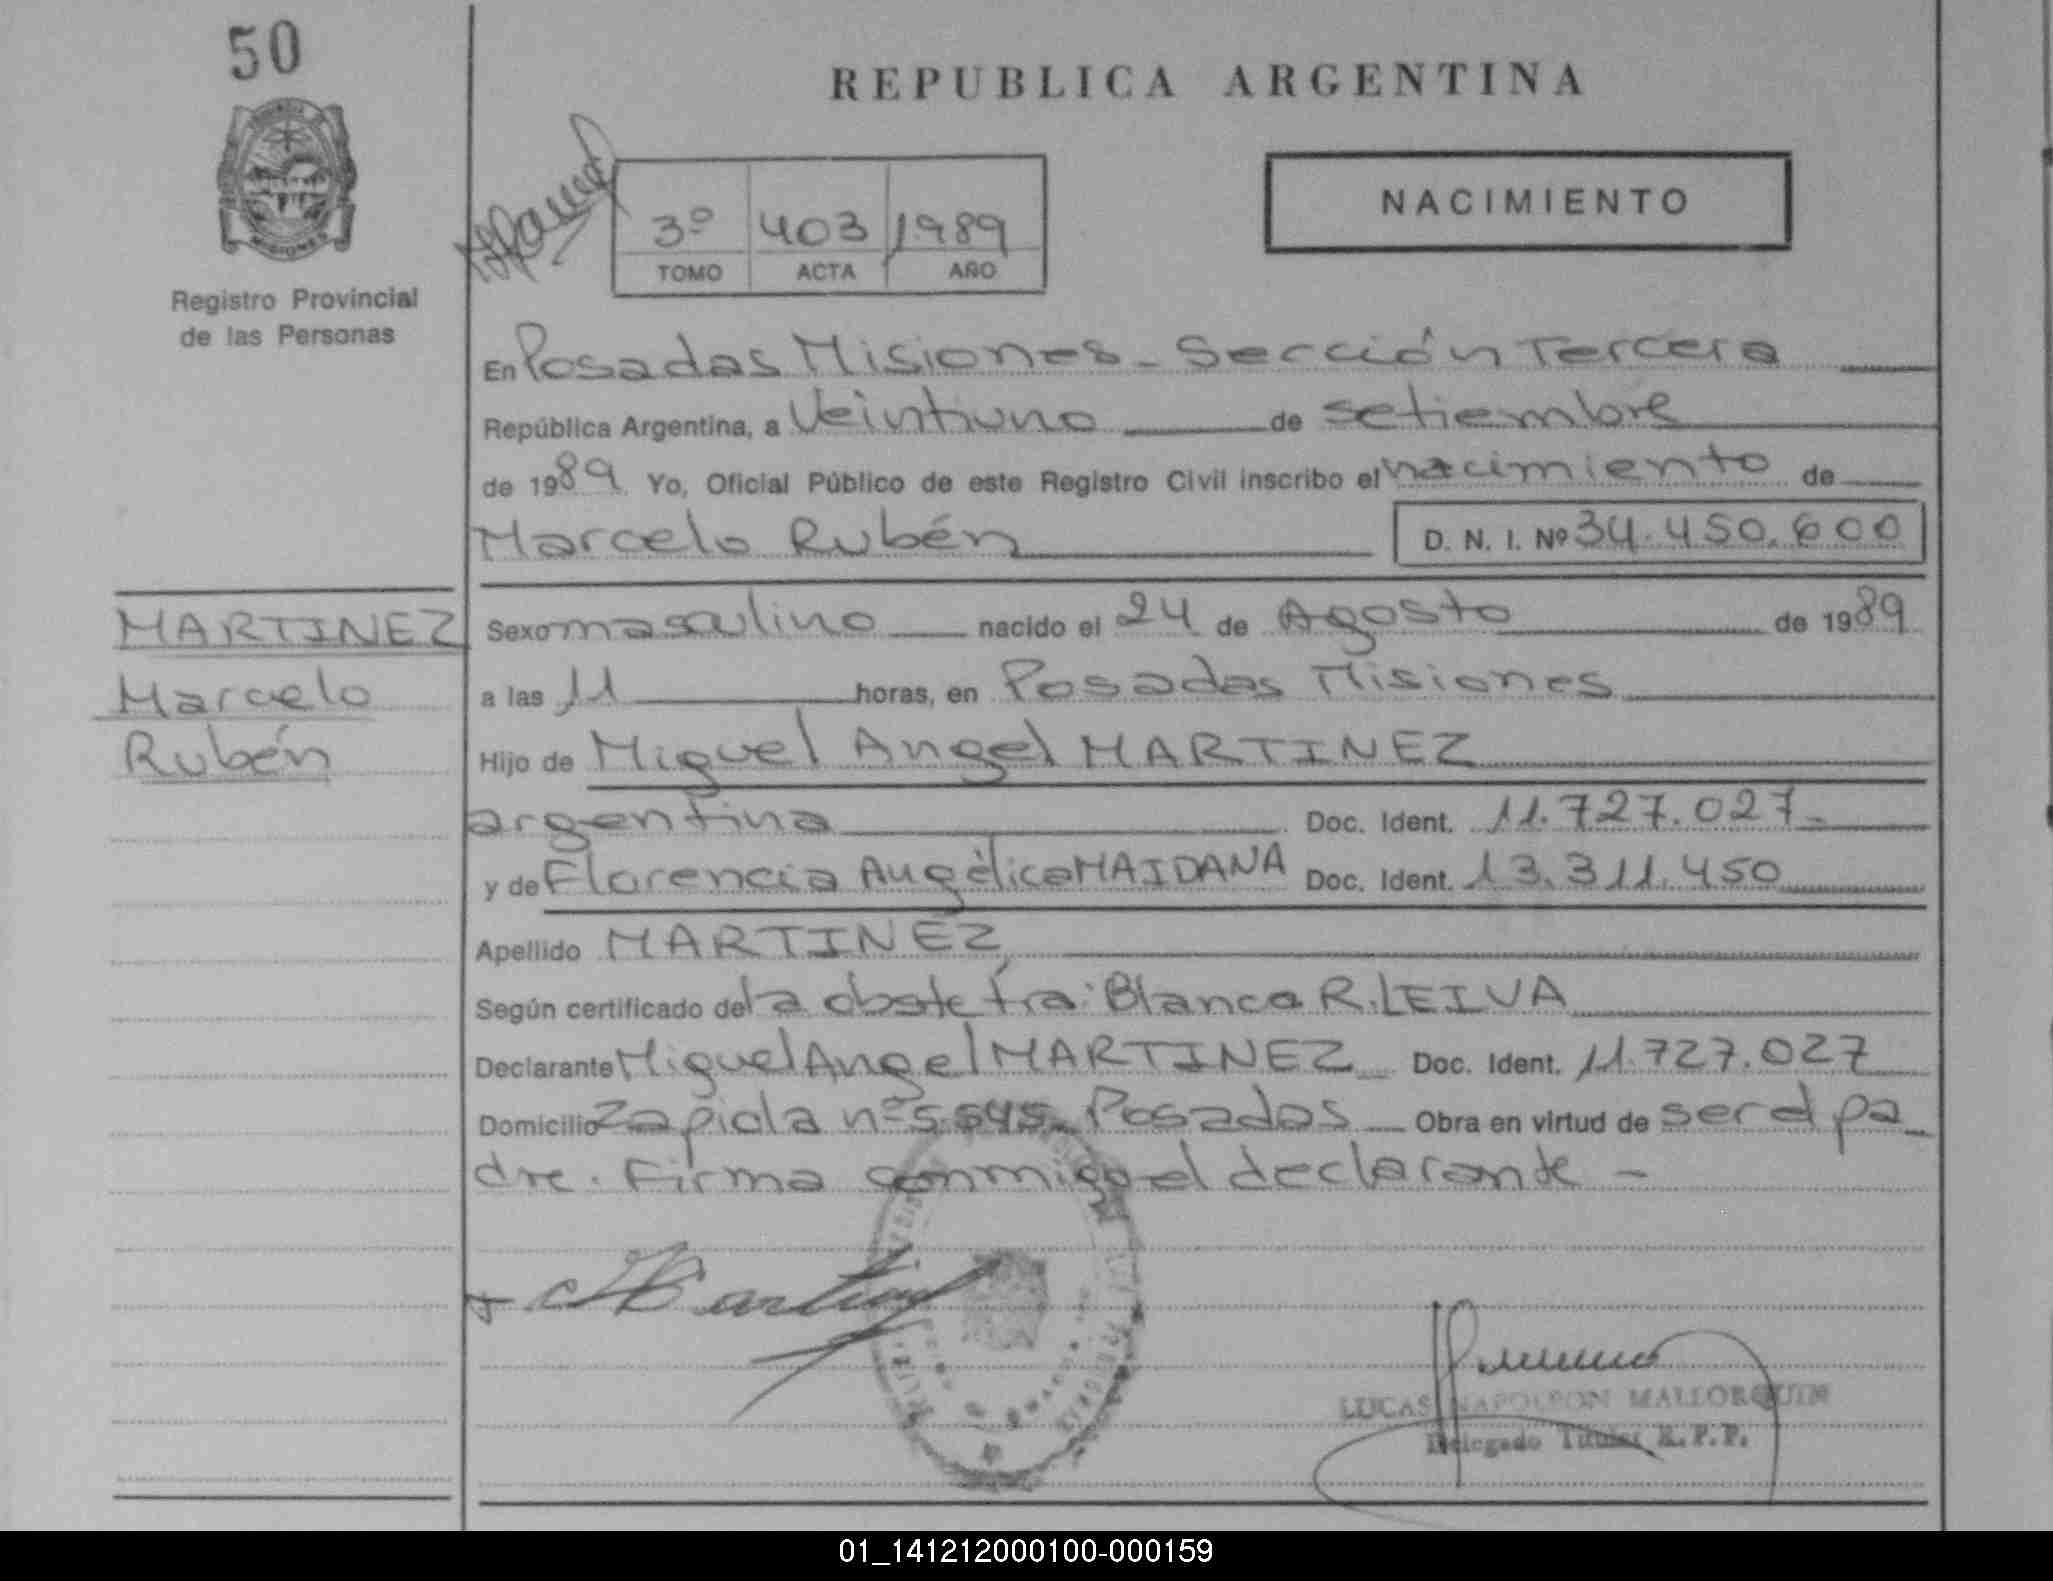 50
REPUBLICA ARGENTINA
MISIONES
Registro Provincial
de las Personas
3º 403 1989
TOMO ACTA AÑO
NACIMIENTO
En Posadas Misiones - Sección Tercera
República Argentina, a Veintiuno de setiembre
de 1989 Yo, Oficial Público de este Registro Civil inscribo el nacimiento de
Marcelo Rubén D. N. I. Nº 34.450.600
MARTINEZ
Marcelo
Rubén
Sexo masculino nacido el 24 de Agosto de 1989
a las 11 horas, en Posadas Misiones
Hijo de Miguel Angel MARTINEZ
argentina Doc. Ident. 11.727.027.-
y de Florencia Angélica MAIDANA Doc. Ident. 13.311.450
Apellido MARTINEZ
Según certificado de la obstetra: Blanca R. LEIVA
Declarante Miguel Angel MARTINEZ Doc. Ident. 11.727.027
Domicilio Zapiola nº 5.545. Posadas Obra en virtud de ser el pa
dre. Firma conmigo el declarante -
LUCAS NAPOLEON MALLORQUIN
Delegado Titular R.P.P.
01_141212000100-000159